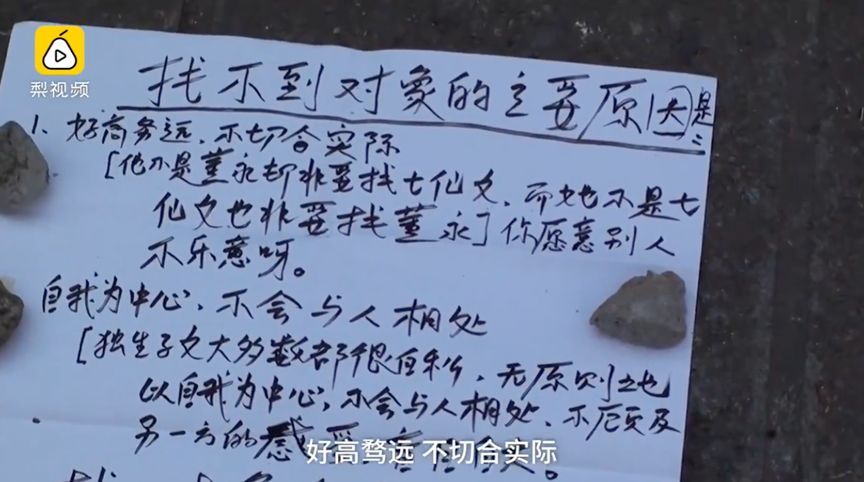 梨视频
找不到对象的主要原因是:
1、好高务远、不切合实际
[他不是董永却非要找七仙女、而她也不是七
仙女也非要找董永]你愿意别人
不乐意呀。
自我为中心、不会与人相处
[独生子女大多数都很自私、无原则地
以自我为中心、不会与人相处、不顾及
另一方的感受
好高骛远 不切合实际